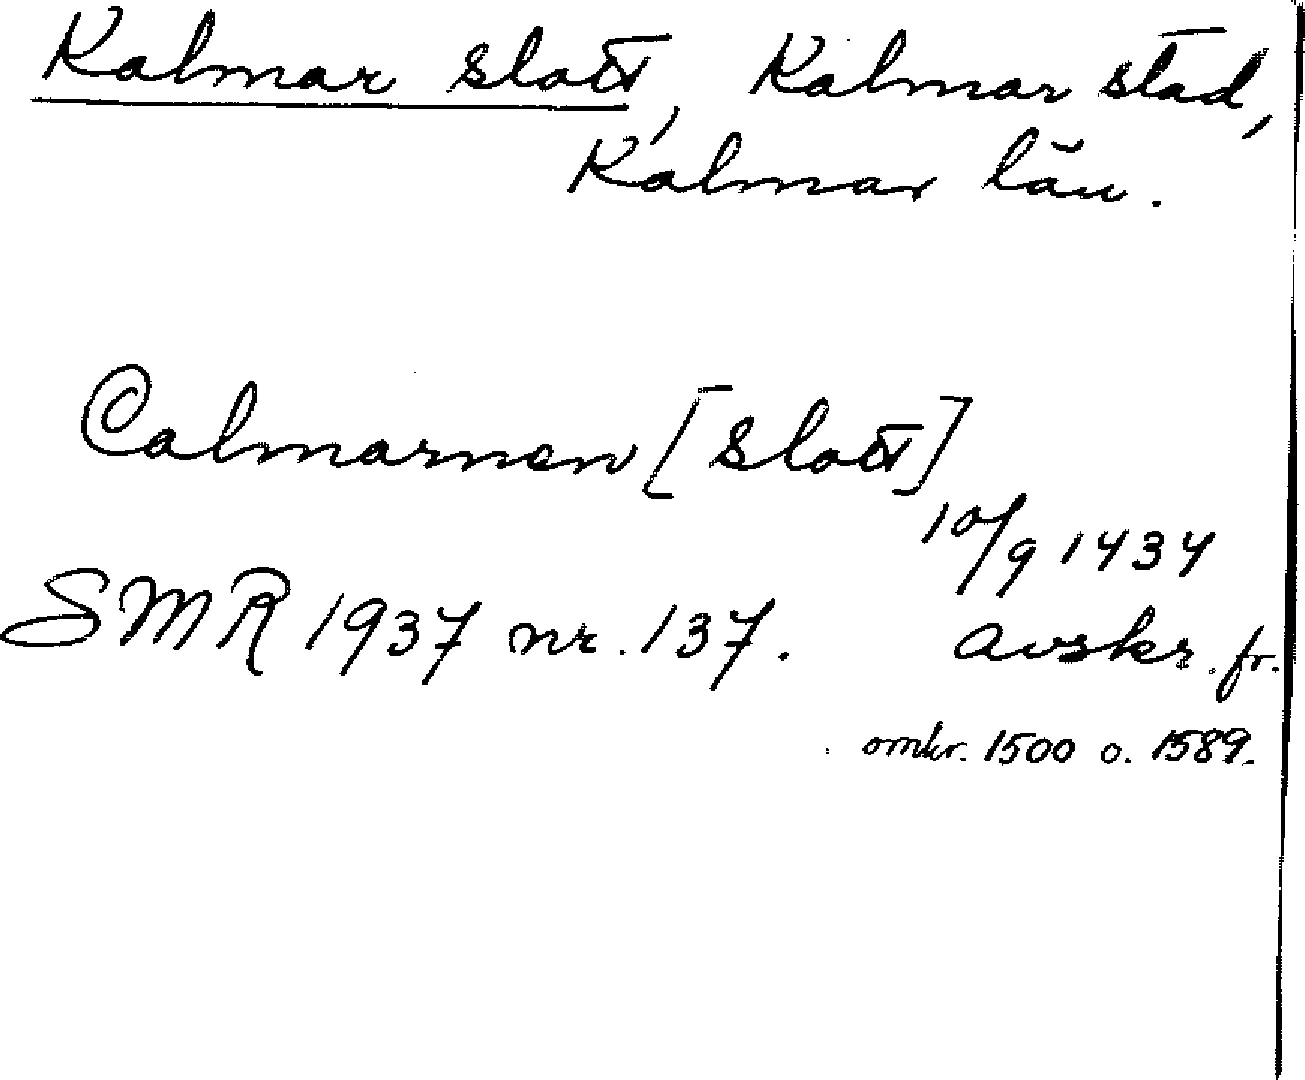 Kalmar slott, Kalmar stad,
Kalmar län.
Calmarnen [slott]
10/9 1434
SMR 1937 nr. 137. avskr. fr.
omkr. 1500 o. 1589.